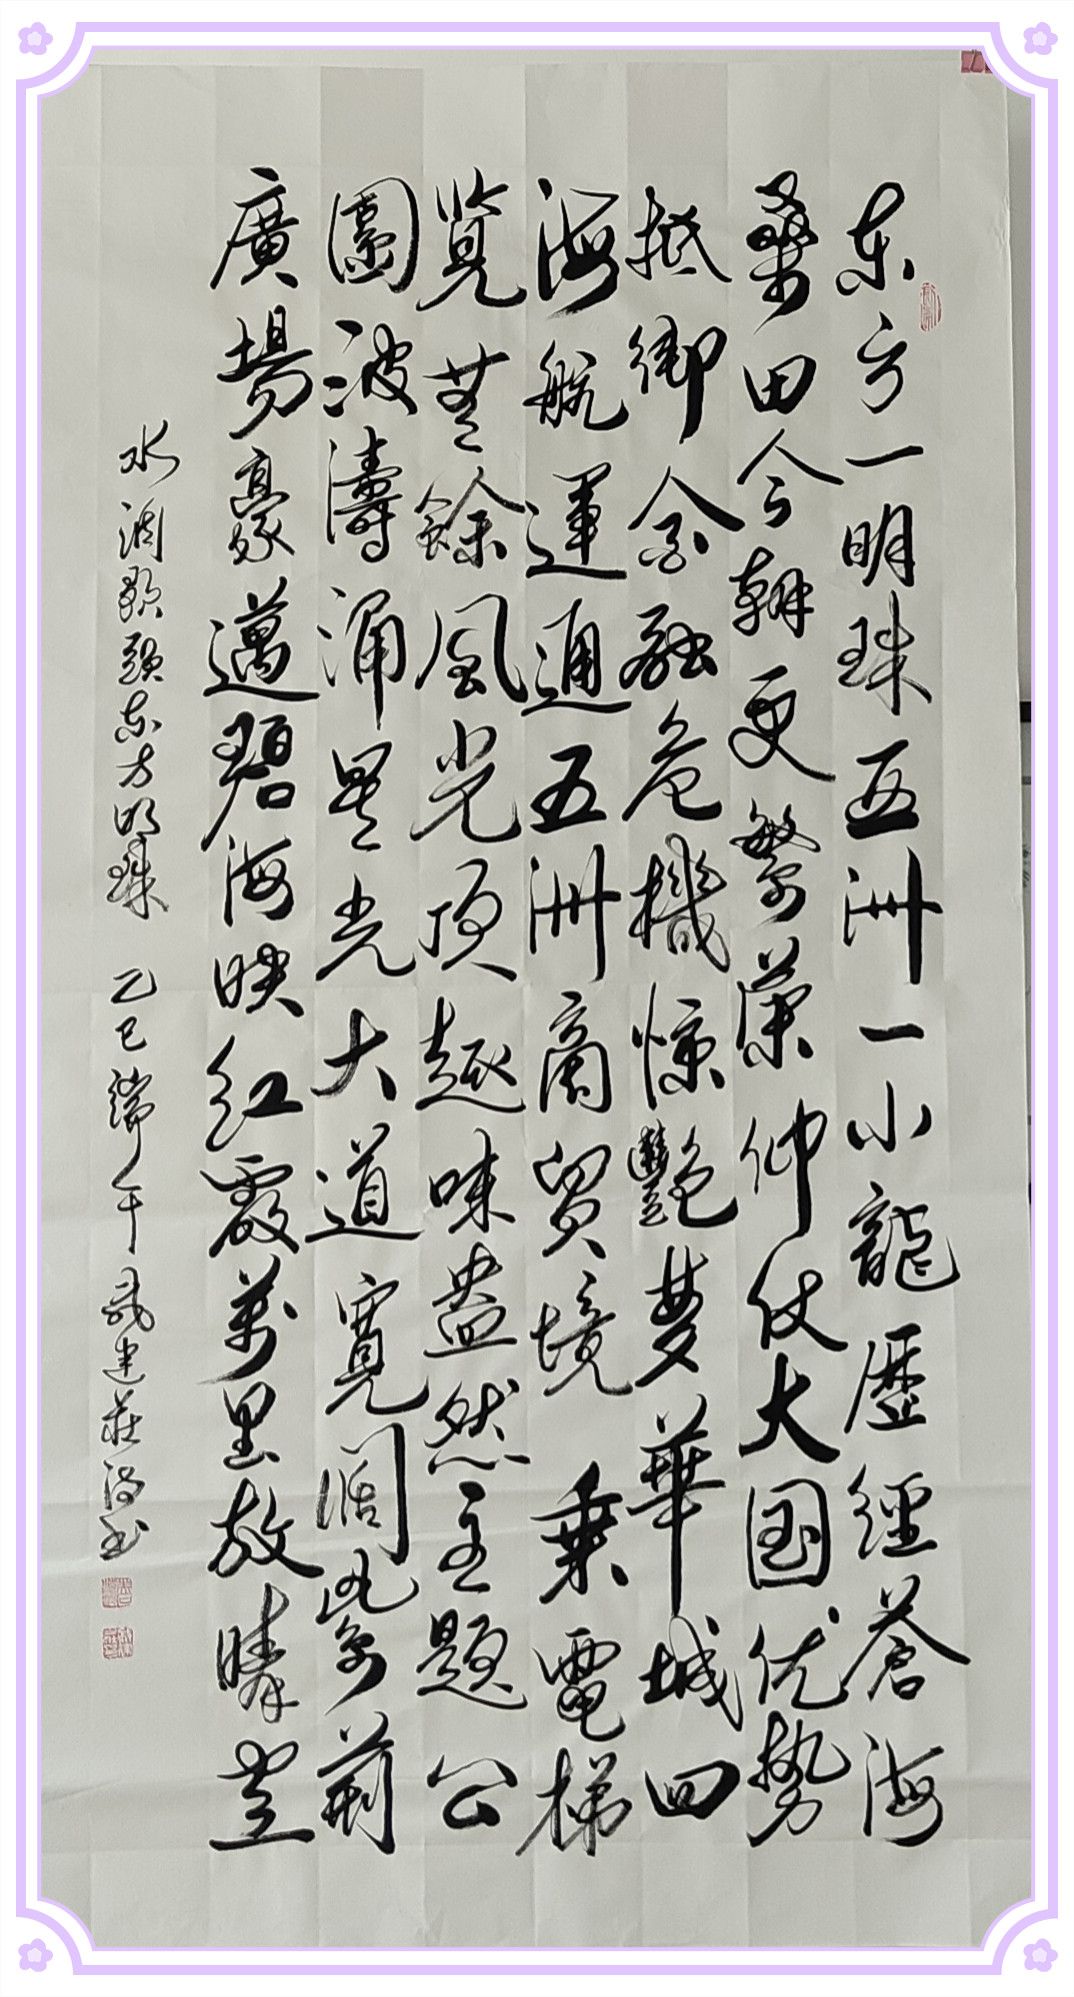 东方一明珠亚洲一小龍歷經蒼海
桑田今朝更繁榮仰仗大国优势
抵御金融危機惊艷梦華城四
海航運通五洲商貿境乘電梯
覽無餘風光頂趣味盎然主題公
園波濤涌星光大道寬阔紫荊
廣場豪邁碧海映紅霞萬里放晴空
水调歌题东方明珠 乙巳端午 建莊